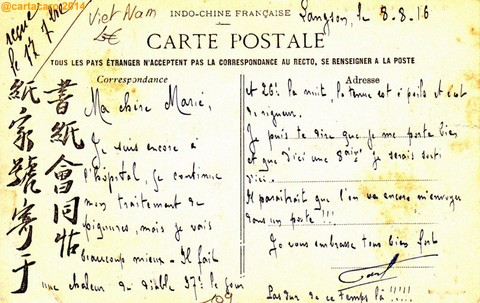 @cartacaro2014
reçue
le 17 7bre
Viet Nam
INDO-CHINE FRANÇAISE
Langson, le 8.8.16
CARTE POSTALE
TOUS LES PAYS ÉTRANGER N'ACCEPTENT PAS LA CORRESPONDANCE AU RECTO, SE RENSEIGNER A LA POSTE
Correspondance
Ma chère Marie,
Je suis encore à
l'hôpital, je continue
mon traitement de
piqûres, mais je vais
beaucoup mieux. Il fait
une chaleur du diable 37° le jour
Adresse
et 26° la nuit, la tenue est à poils et c'est
de rigueur.
Je puis te dire que je me porte bien
et que d'ici une 8aine je serais sorti
d'ici.
Il paraitrait que l'on va encore m'envoyer
dans un poste !!!
Je vous embrasse tous bien fort
de ce temps là !!!!
109
書紙會同
紙家號寄于